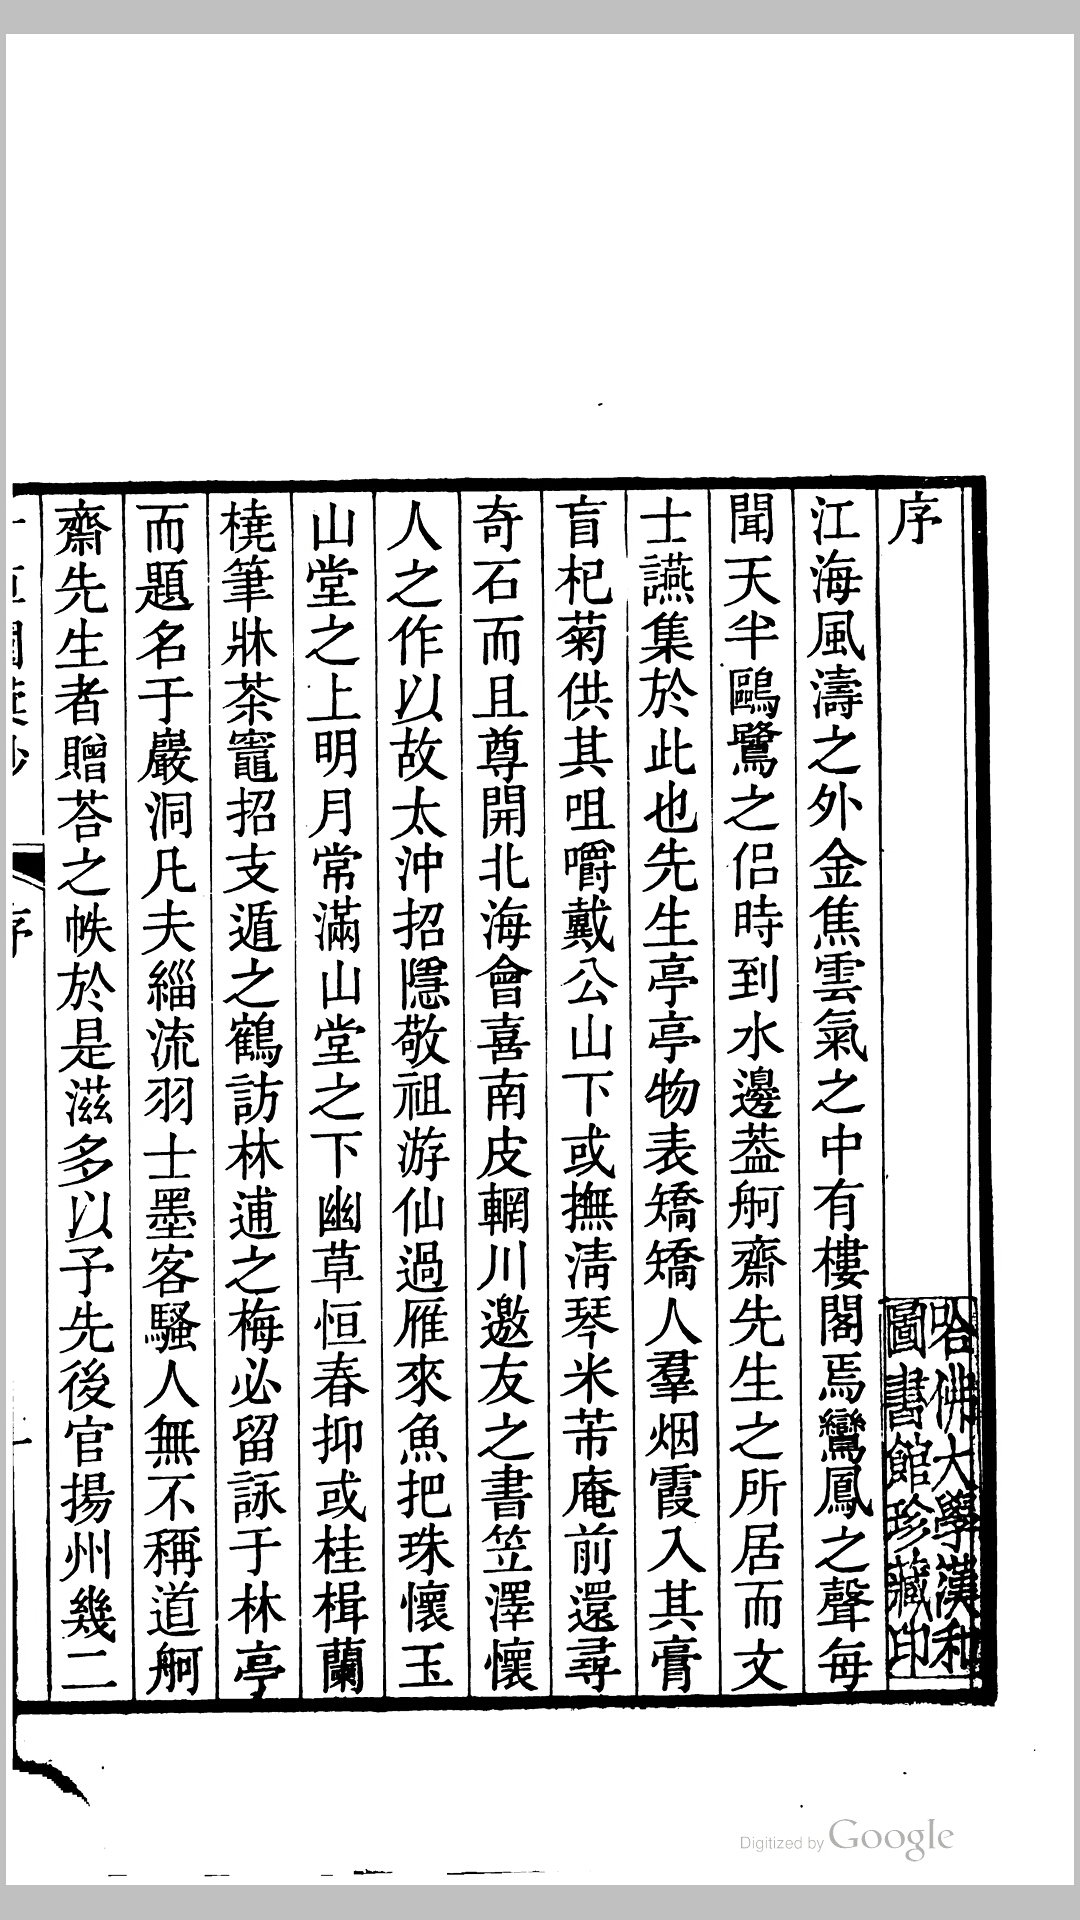 序
哈佛大學漢和
圖書館珍藏印
江海風濤之外金焦雲氣之中有樓閣焉鸞鳳之聲每
聞天半鷗鷺之侶時到水邊葢舸齋先生之所居而文
士讌集於此也先生亭亭物表矯矯人羣烟霞入其膏
肓杞菊供其咀嚼戴公山下或撫淸琴米芾庵前還尋
奇石而且尊開北海會喜南皮輞川邀友之書笠澤懷
人之作以故太沖招隱敬祖游仙過雁來魚把珠懷玉
山堂之上明月常滿山堂之下幽草恒春抑或桂楫蘭
橈筆牀茶竈招支遁之鶴訪林逋之梅必留詠于林亭
而題名于巖洞凡夫緇流羽士墨客騷人無不稱道舸
齋先生者贈荅之帙於是滋多以予先後官揚州幾二
序
一
Digitized by Google